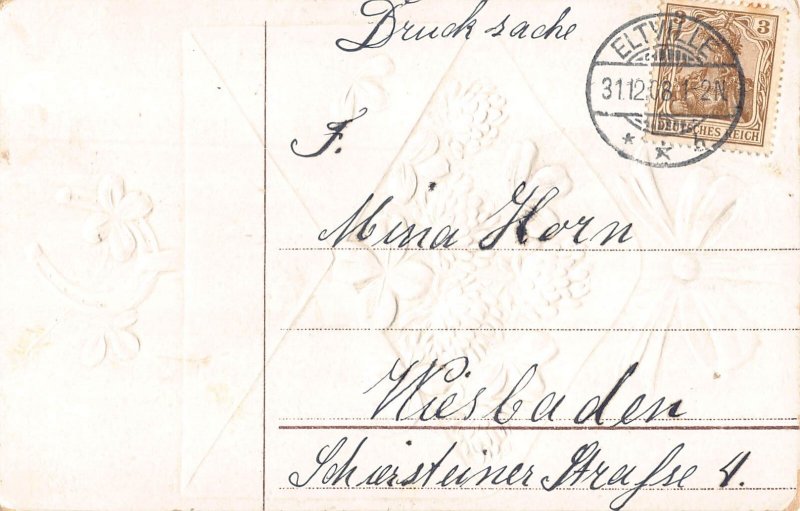 Drucksache
3
ELTVILLE
31.12.08.1-2N
DEUTSCHES REICH
F.
Mina Horn
Wiesbaden
Schiersteiner Straße 4.